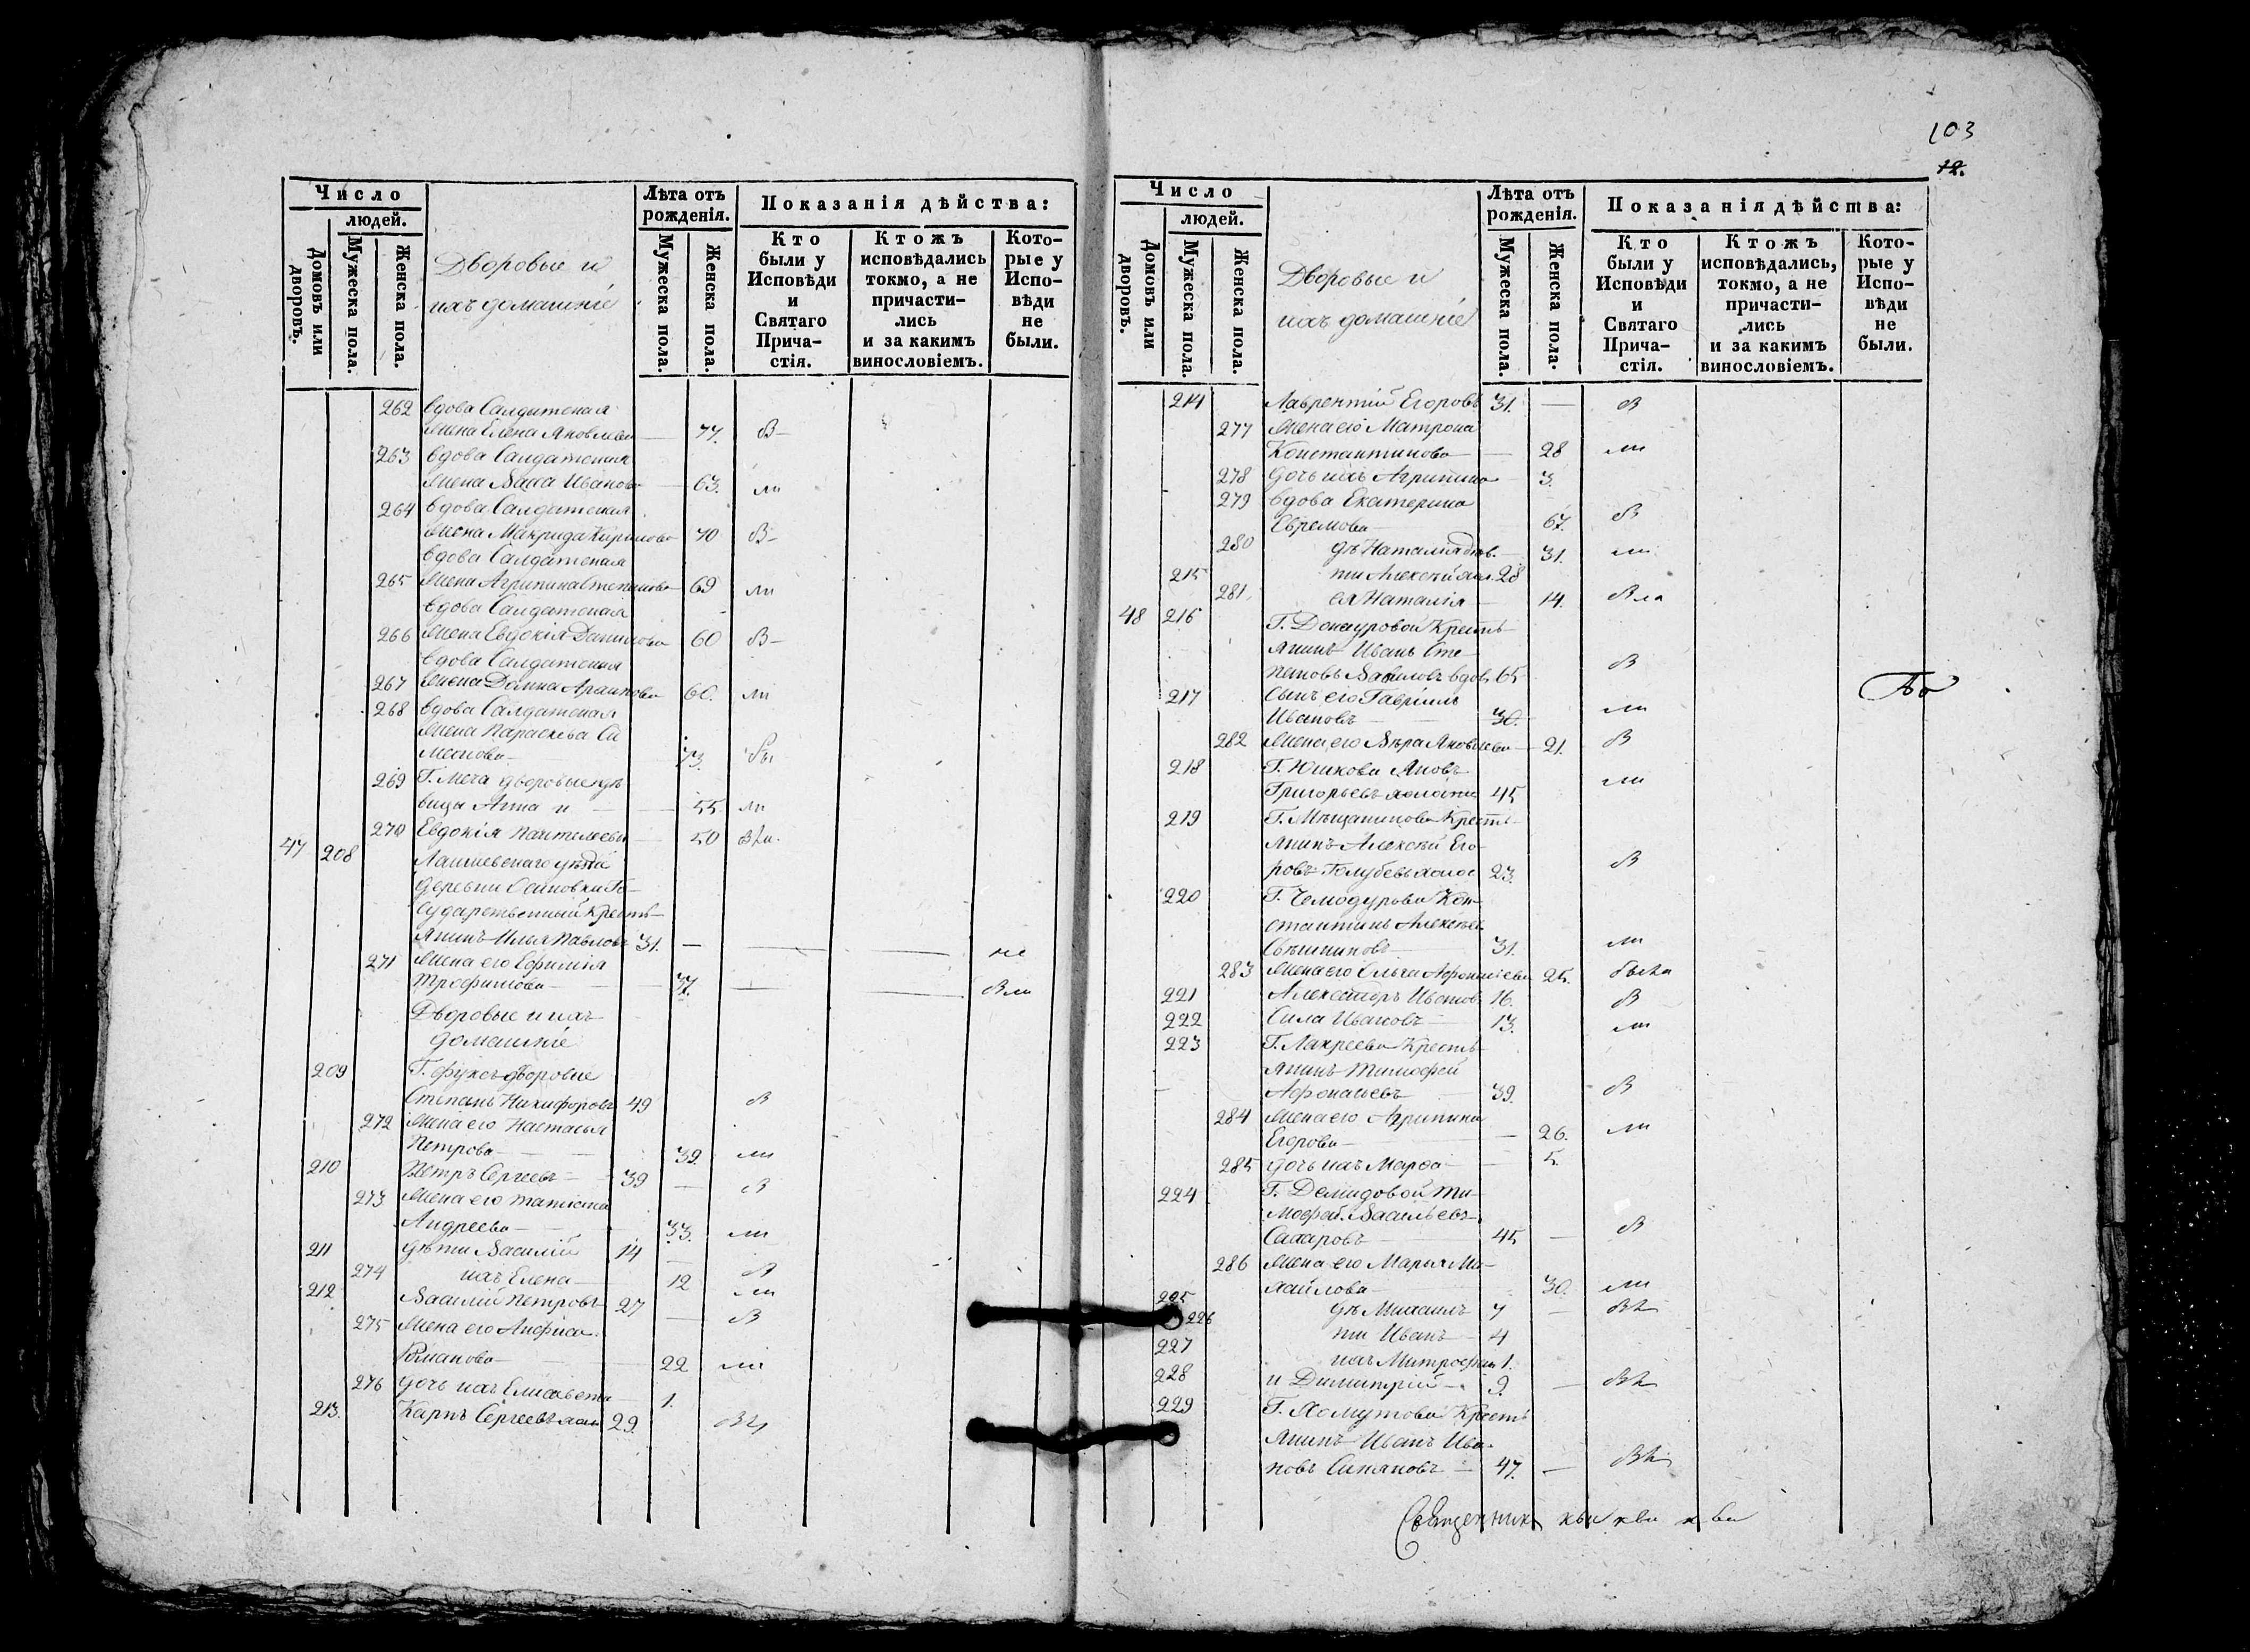 103
12.
Число
людей.
Домовъ или дворовъ.
Мужеска пола.
Женска пола.
Дворовые и
ихъ домашніе
Лѣта отъ
рожденія.
Мужеска пола.
Женска пола.
Показанія дѣйства:
Кто
были у
Исповѣди
и
Святаго
Прича-
стія.
Ктожъ
исповѣдались
токмо, а не
причасти-
лись
и за какимъ
винословіемъ.
Кото-
рые у
Испо-
вѣди
не
были.
262 вдова Салдатская
жена Елена Яковлева 77. В
263 вдова Салдатская
жена Васса Иванова 63. ли
264 вдова Салдатская
жена Макрида Кирилова 70 В
вдова Салдатская
265 жена Агрипина Степанова 69 ли
вдова Салдатская
266 жена Евдокія Данилова 60 В
вдова Салдатская
267 жена Домна 60. ли
268 вдова Салдатская
жена Параскева Си
меонова 73. бы
269 Г. дворовые дѣ
вицы Анна и 55 ли
270 Евдокія Пантелеева 50
47 208 Лаишевскаго уѣзда
деревни Го-
сударственный Кресть-
янинъ Илья Павловъ 31. не
271 жена его Ефимія
Трофимова 37.
Дворовые и ихъ
домашніе
209 Г. Фуксъ дворовые
Степанъ Никифоровъ 49 В
272 жена его Настасья
Петрова 39. ли
210 Петръ Сергеевъ 39 В
273 жена его Татіана
Андреева 33. ли
211 дѣти Василій 14 В
274 ихъ Елена 12 ли
212 Василій Петровъ 27 В
275 жена его Анфиса
Романова 22 ли
276 дочь ихъ Елисавета 1.
213. Карпъ Сергеевъ хол 29.
Число
людей.
Домовъ или дворовъ.
Мужеска пола.
Женска пола.
Дворовые и
ихъ домашніе
Лѣта отъ
рожденія.
Мужеска пола.
Женска пола.
Показанія дѣйства:
Кто
были у
Исповѣди
и
Святаго
Прича-
стія.
Ктожъ
исповѣдались,
токмо, а не
причасти-
лись
и за какимъ
винословіемъ.
Кото-
рые у
Испо-
вѣди
не
были.
214 Лаврентій Егоровъ 31. В
277 жена его Матрона
Константинова 28 ли
278 дочь ихъ Агрипина 3.
279 вдова Екатерина
Ефремова 67. В
280 дѣ Наталія 31. ли
215 ти Алексѣй хол. 28
281. ея Наталія 14.
48 216 Г. Донауровой Кресть-
янинъ Иванъ Сте-
пановъ вдов. 65 В
217 сынъ его Гавріилъ
Ивановъ 30. ли
282 жена его Вѣра Яковлева 21. В
218 Г. Юшкова Яковъ
Григорьевъ холостъ 45 ли
219 Г. Мещанинова Кресть-
янинъ Алексѣй Его-
ровъ Голубевъ холос 23. В
220 Г. Чемодурова Кон-
стантинъ Алексѣев
31. ли
283 жена его Ольга Афонасіева 25.
221 Александръ Иванов 16. В
222 Сила Ивановъ 13. ли
223 Г. Кресть-
янинъ Тимофей
Афонасьевъ 39. В
284 жена его Агрипина
Егорова 26. ли
285 дочь ихъ Марфа 5.
224 Г. Демидовой Ти-
мофей Васильевъ
Сахаровъ 45 В
286 жена его Марья Ми-
хайлова 30. ли
225 дѣ Михаилъ 7
226 ти Иванъ 4
227 ихъ Митрофан 1.
228 и Димитрій 9.
229 Г. Хомутова Кресть
янинъ Иванъ Ива-
новъ 47.
Священникъ